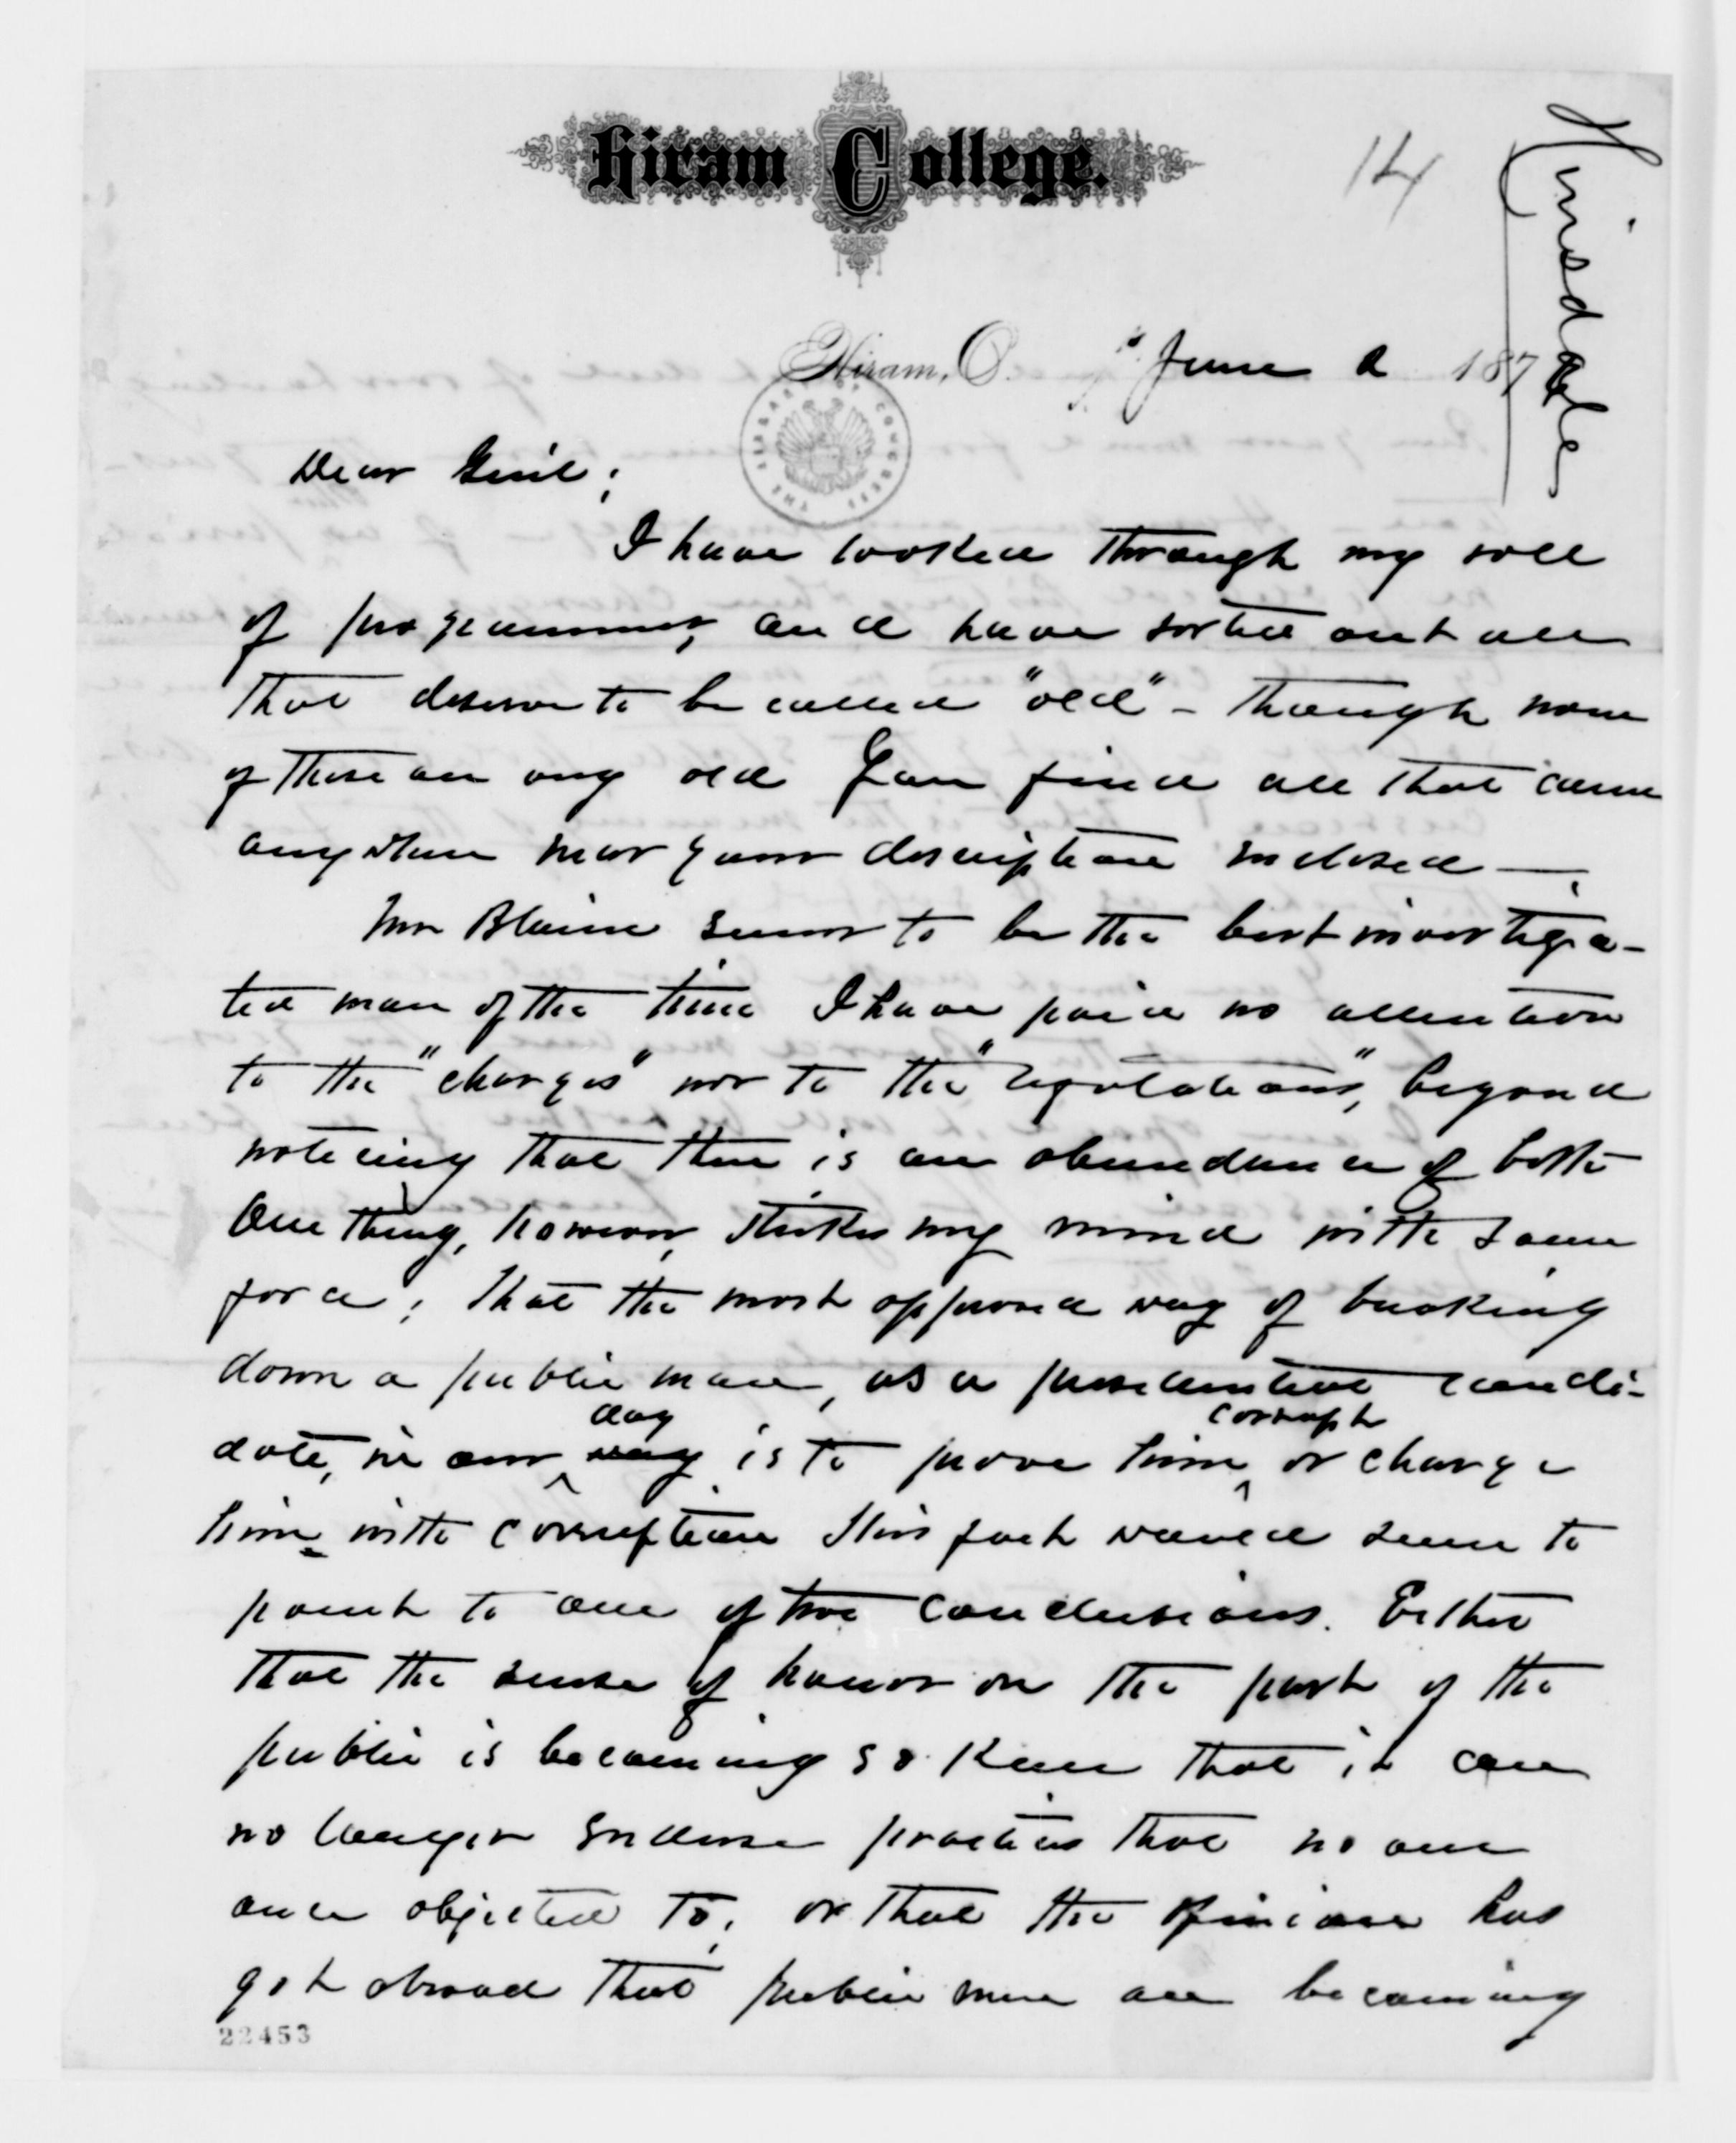 Hiram College.
14
Hinsdale
Hiram, O. June 2 187
Dear Genl;
I have looked through my roll
of programmes, and have sorted out all
that deserve to be called "old" - though none
of these are very old You find all that came
anywhere near your description inclosed —
Mr Blaine seems to be the best investiga-
ted man of the time I have paid no attention
to the "charges" nor to the "refutations", beyond
noticing that there is an abundance of both
One thing, however, strikes my mind with some
force; that the most approved way of breaking
down a public man, as a presidential candi-
date, in our day is to prove him corrupt or charge
him with corruption This fact would seem to
point to one of two conclusions. Either
that the sense of honor on the part of the
public is becoming so keen that it can
no longer endure practices that no one
once objected to; or that the opinion has
got abroad that public men are becoming
22453